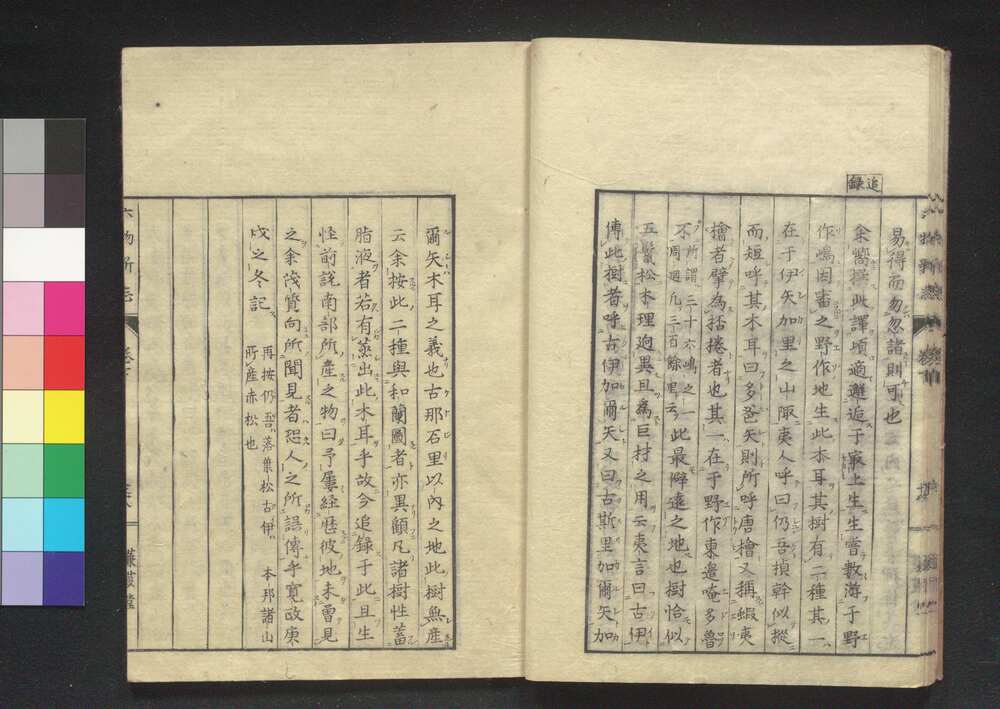 追録
易得而勿忽諸則可也
余嚮撰此譯頃適邂逅于最上生生嘗數游于野
作嶋因審之野作地生此木耳其樹有二種其一
在于伊矢加里之山陬夷人呼曰仍吾損幹似樅
而短呼其木耳曰多爸矢則所呼唐檜又稱蝦夷
檜者擘為括捲者也其一在于野作東邉奄多魯
不所謂三十六嶋之一周廻凡三百餘里云此最僻遠之地也樹恰似
五鬣松木理逈異且為巨材之用云夷言曰古伊
傅此樹者呼古伊加爾矢又曰古斯里加爾矢加
爾矢木耳之義也古那石里以內之地此樹無產
云余按此二種與和蘭圖者亦異顧凡諸樹性蓄
脂液者若有蒸出此木耳乎故今追録于此且生
怪前説南部所產之物曰予屢経歴彼地未曾見
之余淺貲向所聞見者恐人之所誤傳乎寛政庚
戌之冬記
再按仍吾落葉松古伊
本邦諸山
所產赤松也
六物新志